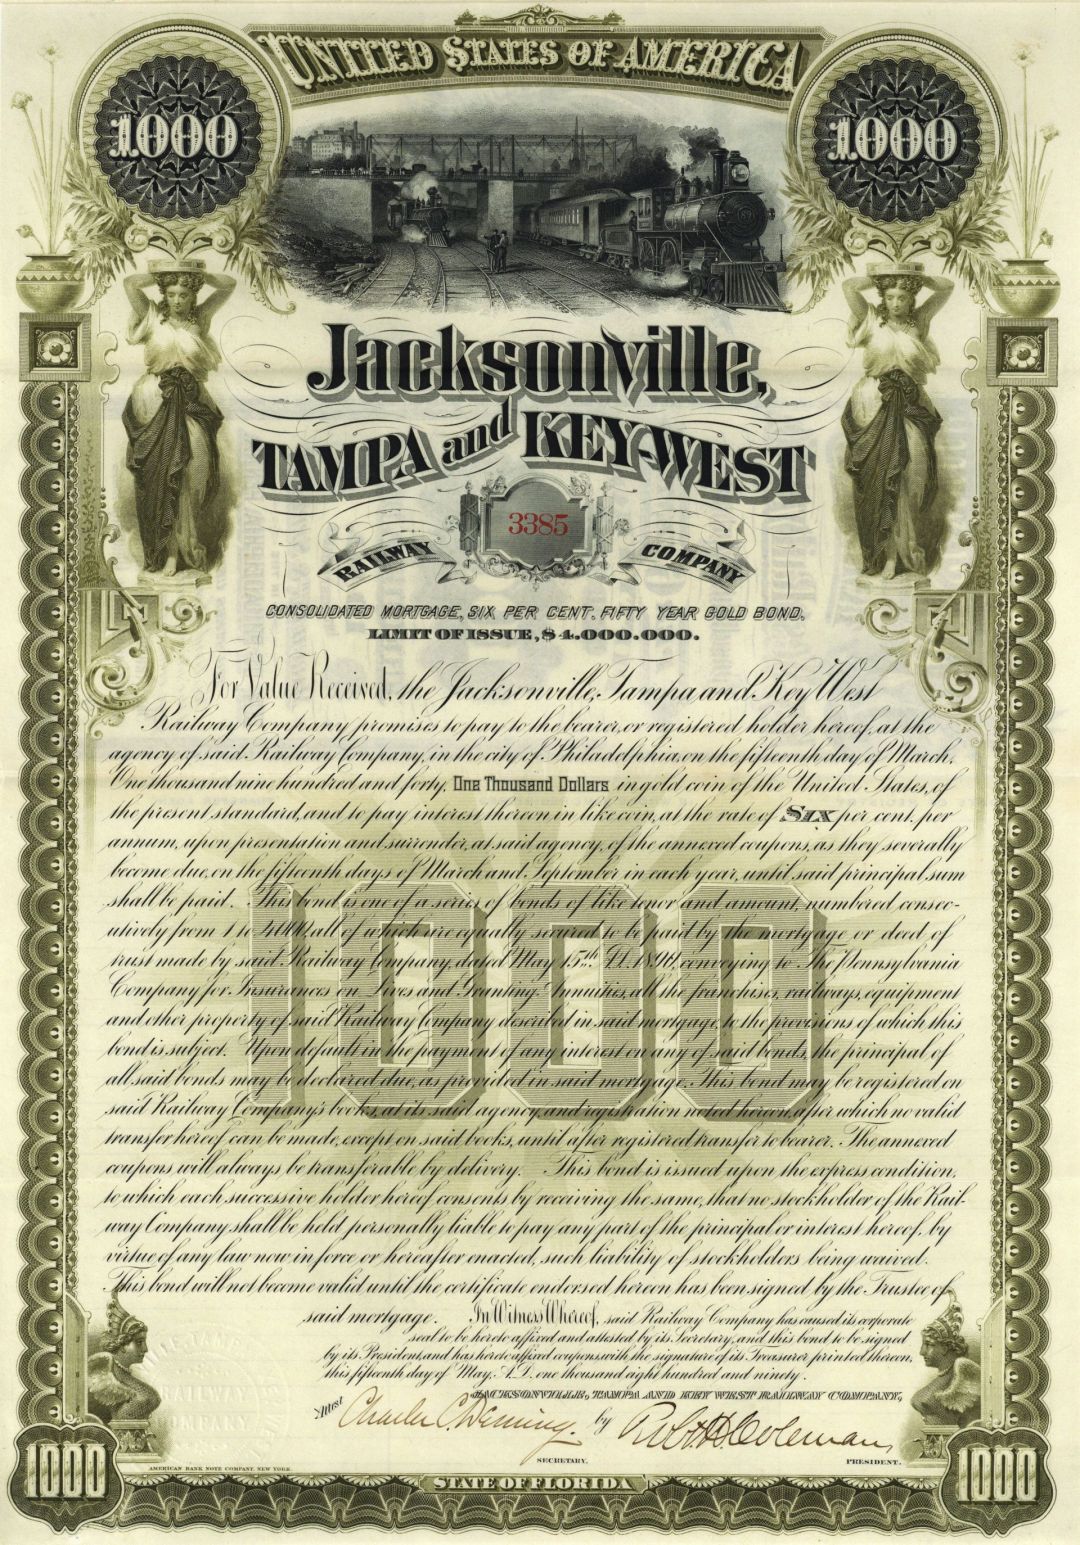 UNITED STATES OF AMERICA
1000
1000
Jacksonville,
TAMPA and KEY-WEST
3385
RAILWAY COMPANY
CONSOLIDATED MORTGAGE, SIX PER CENT. FIFTY YEAR GOLD BOND.
LIMIT OF ISSUE, $4.000.000.
For Value Received, the Jacksonville, Tampa and Key West
Railway Company promises to pay to the bearer, or registered holder hereof, at the
agency of said Railway Company, in the city of Philadelphia, on the fifteenth day of March,
One thousand nine hundred and forty, One Thousand Dollars in gold coin of the United States, of
the present standard, and to pay interest thereon in like coin, at the rate of SIX per cent. per
annum, upon presentation and surrender, at said agency, of the annexed coupons, as they severally
become due, on the fifteenth days of March and September in each year, until said principal sum
shall be paid. This bond is one of a series of bonds of like tenor and amount, numbered consec-
utively from 1 to 4000, all of which are equally secured to be paid by the mortgage or deed of
trust made by said Railway Company, dated May 15th A.D. 1890, conveying to The Pennsylvania
Company for Insurances on Lives and Granting Annuities, all the franchises, railways, equipment
and other property of said Railway Company described in said mortgage, to the provisions of which this
bond is subject. Upon default in the payment of any interest on any of said bonds, the principal of
all said bonds may be declared due, as provided in said mortgage. This bond may be registered on
said Railway Company's books, at its said agency, and registration noted hereon, after which no valid
transfer hereof can be made, except on said books, until after registered transfer to bearer. The annexed
coupons will always be transferable by delivery. This bond is issued upon the express condition,
to which each successive holder hereof consents by receiving the same, that no stockholder of the Rail-
way Company shall be held personally liable to pay any part of the principal or interest hereof, by
virtue of any law now in force or hereafter enacted, such liability of stockholders being waived.
This bond will not become valid until the certificate endorsed hereon has been signed by the Trustee of
said mortgage. In Witness Whereof, said Railway Company has caused its corporate
seal to be hereto affixed and attested by its Secretary, and this bond to be signed
by its President, and has hereto affixed coupons, with the signature of its Treasurer printed thereon,
this fifteenth day of May, A.D. one thousand eight hundred and ninety.
JACKSONVILLE, TAMPA AND KEY WEST RAILWAY COMPANY,
Attest Charles C. Deming. by Robt H. Coleman
SECRETARY. PRESIDENT.
AMERICAN BANK NOTE COMPANY, NEW YORK.
1000
STATE OF FLORIDA
1000
1000
RAILWAY
COMPANY